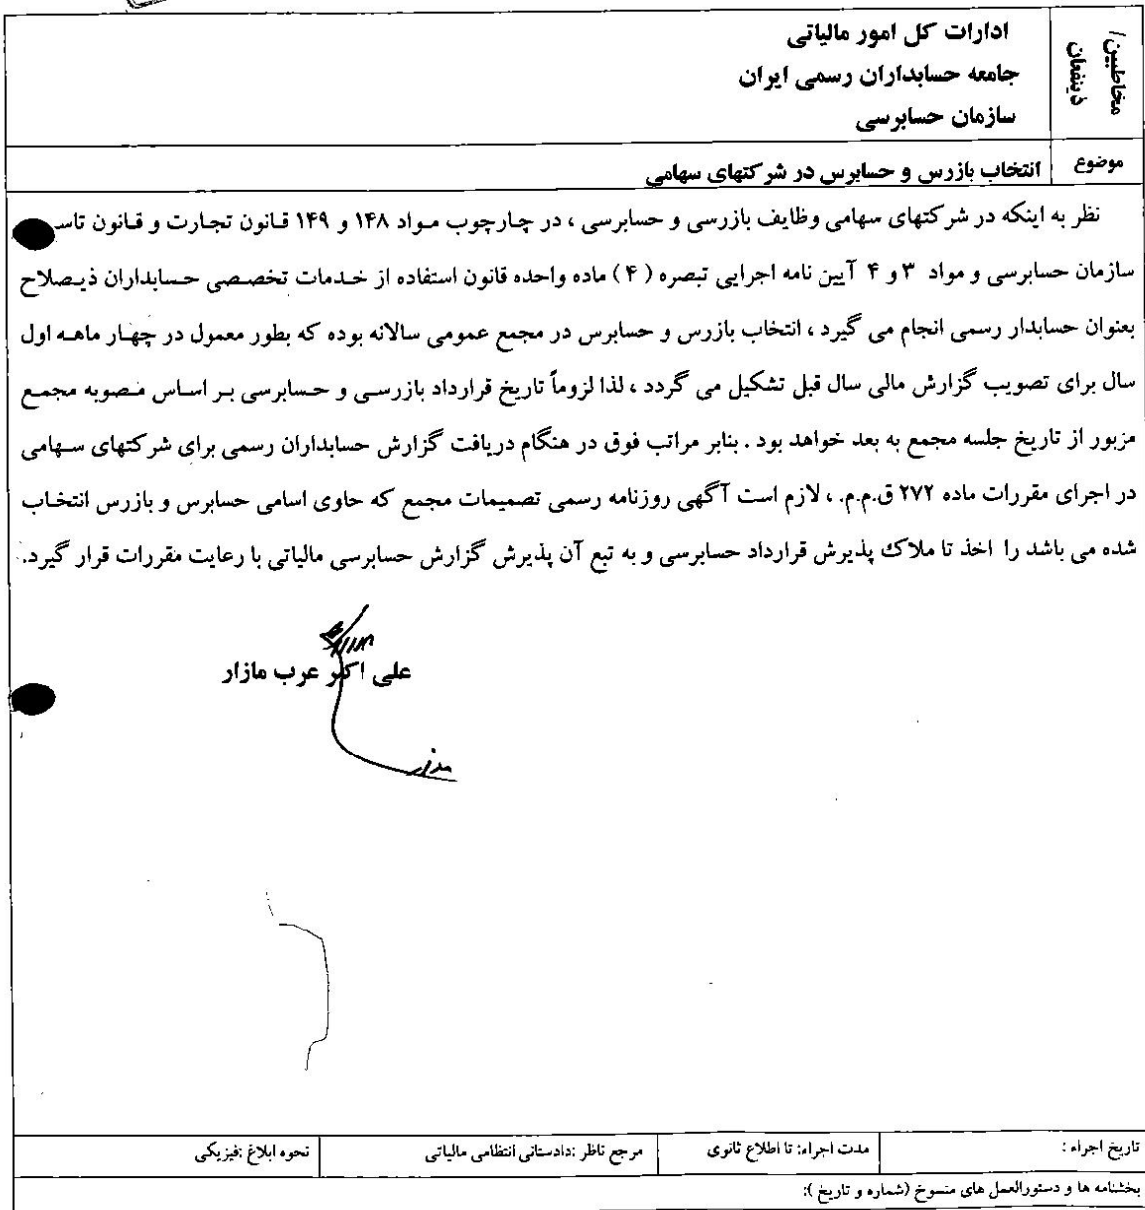 ادارات کل امور مالیاتی
جامعه حسابداران رسمی ایران
سازمان حسابرسی
مخاطبین /
ذینفعان
موضوع
انتخاب بازرس و حسابرس در شرکتهای سهامی
نظر به اینکه در شرکتهای سهامی وظایف بازرسی و حسابرسی ، در چارچوب مواد ۱۴۸ و ۱۴۹ قانون تجارت و قانون تاسـ
سازمان حسابرسی و مواد ۳ و ۴ آیین نامه اجرایی تبصره ( ۴ ) ماده واحده قانون استفاده از خدمات تخصصی حسابداران ذیصلاح
بعنوان حسابدار رسمی انجام می گیرد ، انتخاب بازرس و حسابرس در مجمع عمومی سالانه بوده که بطور معمول در چهار ماهه اول
سال برای تصویب گزارش مالی سال قبل تشکیل می گردد ، لذا لزوماً تاریخ قرارداد بازرسی و حسابرسی بر اساس مصوبه مجمع
مزبور از تاریخ جلسه مجمع به بعد خواهد بود . بنابر مراتب فوق در هنگام دریافت گزارش حسابداران رسمی برای شرکتهای سهامی
در اجرای مقررات ماده ۲۷۲ ق.م.م. ، لازم است آگهی روزنامه رسمی تصمیمات مجمع که حاوی اسامی حسابرس و بازرس انتخاب
شده می باشد را اخذ تا ملاک پذیرش قرارداد حسابرسی و به تبع آن پذیرش گزارش حسابرسی مالیاتی با رعایت مقررات قرار گیرد.
علی اکبر عرب مازار
تاریخ اجراء :
مدت اجراء: تا اطلاع ثانوی
مرجع ناظر :دادستانی انتظامی مالیاتی
نحوه ابلاغ :فیزیکی
بخشنامه ها و دستورالعمل های منسوخ (شماره و تاریخ ):